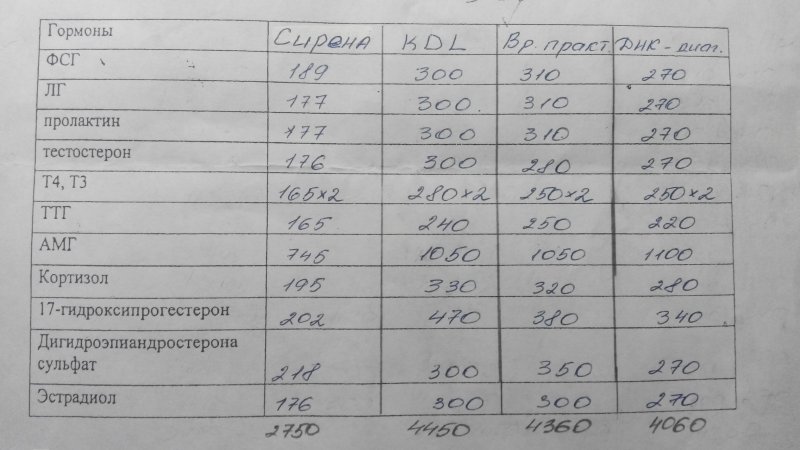 Гормоны Сирена KDL Вр. практ. ДНК-диаг.
ФСГ 189 300 310 270
ЛГ 177 300. 310 270
пролактин 177 300 310 270
тестостерон 176 300 280 270
Т4, Т3 165×2 280×2 250×2 250×2
ТТГ 165 240 250 220
АМГ 745 1050 1050 1100
Кортизол 195 330 320 280
17-гидроксипрогестерон 202 470 380 340
Дигидроэпиандростерона
сульфат 218 300 350 270
Эстрадиол 176 300 300 270
2750 4450 4360 4060